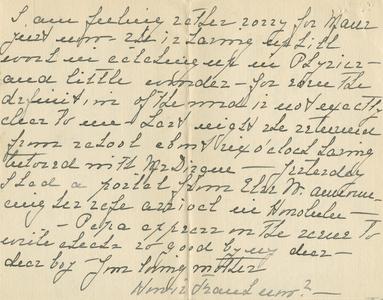 I am feeling rather sorry for Marr
just now she is having uphill
work in catching up in Physics -
and little wonder - for even the
definition of the word is not exactly
clear to me - Last night she returned
from school about six o'clock having
tutored with Mr - Yesterday
I had a postal from Elsie W. announ-
cing her safe arrival in Honolulu -
- Papa expects on the scene to
write checks so good by my dear -
dear boy - Your loving mother
How is Frank now?